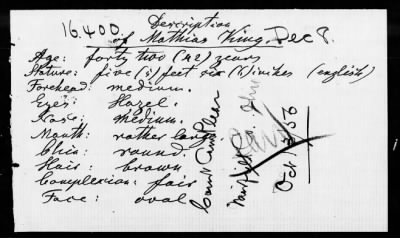 16.400.
Description
of Mathias King. Dec 8.
Age: forty two (42) years
Stature: five (5) feet six (6) inches (english)
Forehead: medium.
Eyes: Hazel.
Nose: medium.
Mouth: rather large
Chin: round.
Hair: brown
Complexion: fair
Face: oval
Oct 1